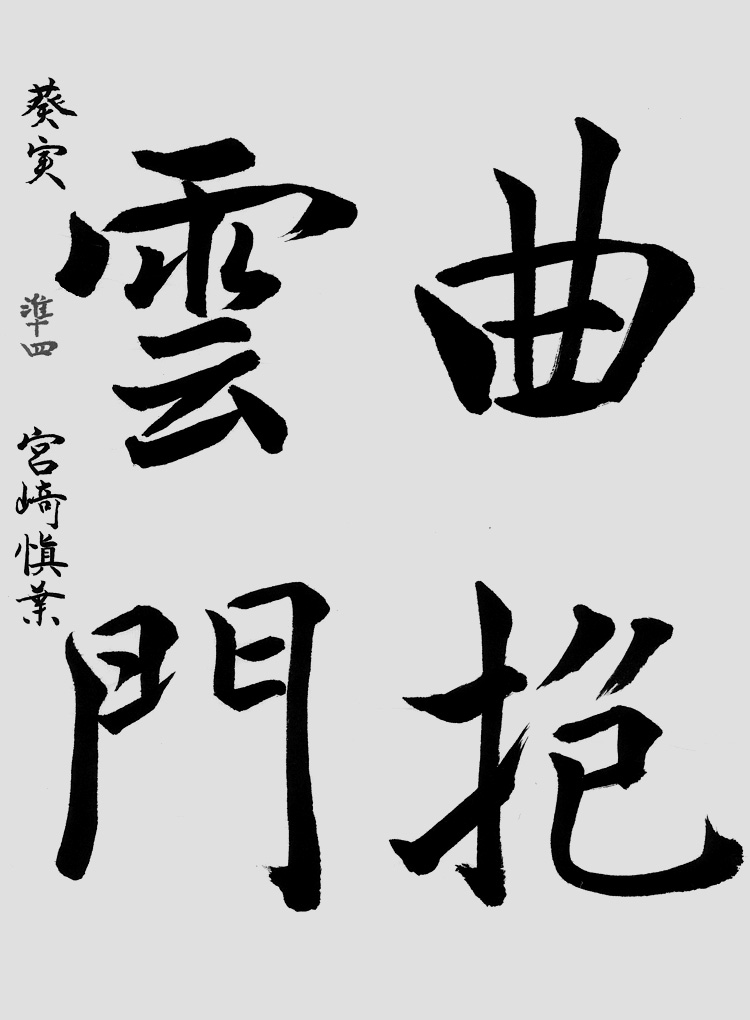 曲抱
雲門
葵実 準十四 宮崎慎業